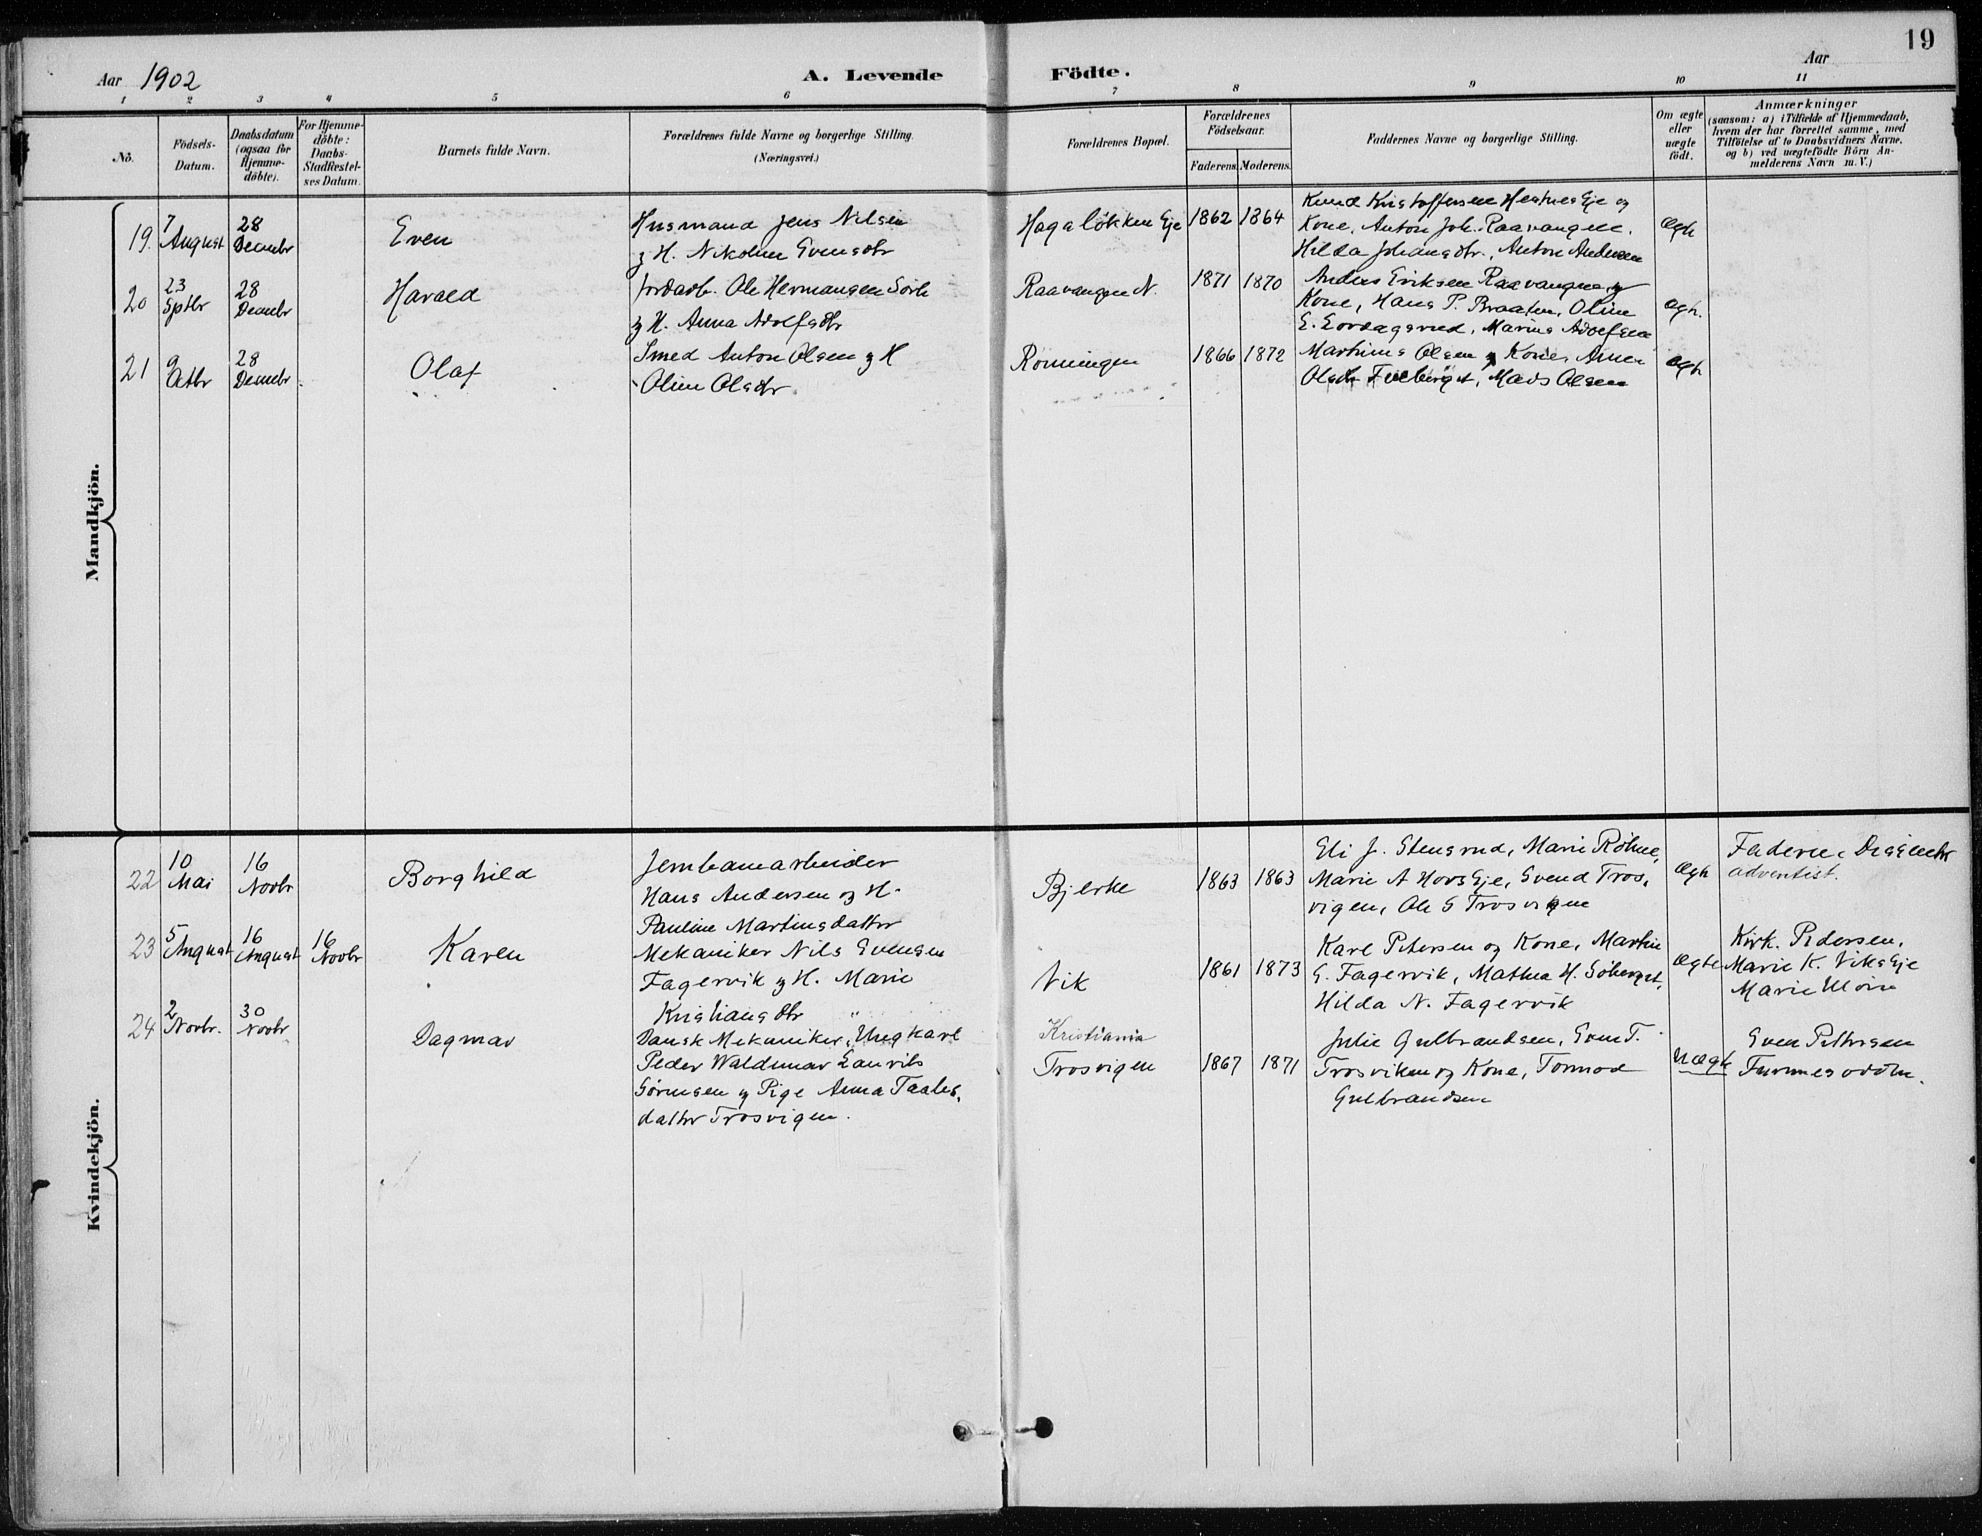 19
Aar 1902 A. Levende Födte. Aar
1 2 3 4 5 6 7 8 9 10 11
No.
Födsels-
Datum.
Daabsdatum
(ogsaa for
Hjemme-
döbte).
For Hjemme-
döbte:
Daabs-
Stadfæstel-
ses Datum.
Barnets fulde Navn.
Forældrenes fulde Navne og borgerlige Stilling.
(Næringsvei.)
Forældrenes Bopæl.
Forældrenes
Födselsaar.
Faderens. Moderens.
Faddernes Navne og borgerlige Stilling.
Om ægte
eller
uægte
födt.
Anmærkninger
(saasom: a) i Tilfælde af Hjemmedaab,
hvem der har forrettet samme, med
Tilföielse af to Daabsvidners Navne,
og b) ved uægtefödte Börn An-
melderens Navn m. V.)
Mandkjön.
19.
7
August
28
Decembr
Even
Husmand Jens Nilsen
og H. Nikoline Evensdtr
Hagaløkken Eje
1862 1864
Knud Kristoffersen Hestnes Eje og
Kone, Anton Joh. Raavangen.
Hilda Johansdtr., Anton Andersen
Ægte
20
23
Sptbr
28
Decmbr
Harald
Jordarb. Ole Hermansen Sörli
og H. Anna Adolfsdtr
Raavangen N.
1871 1870
Anders Eriksen Raavangen og
Kone, Hans P. Braaten, Oline
E. Marius Adolfsen
ægte.
21
9
Octbr
28
Decmbr
Olaf
Smed Anton Olsen og H
Oline Olsdtr.
Rønningen
1866 1872
Martinus Olsen og Kone,
Olsdtr Mads Olsen
ægte
Kvindekjön.
22
10
Mai
16
Novbr
Borghild
Jernbanearbeider
Hans Andersen og H.
Pauline Martinsdatter
Bjerke
1863 1863
Eli J. Stensrud, Marie Røhne,
Marie A Hovs Eje, Svend Tros-
vigen, Ole S Trosvigen
Ægte
Faderen Dissenter
adventist.
23
5
August
16
August
16
Novbr
Karen
Mekaniker Nils Evensen
Fagervik og H. Marie
Kristiansdtr
Vik
1861 1873
Karl Petersen og Kone, Martin
E. Fagervik, Mathea H. Söberget,
Hilda N. Fagervik
Ægte
Kirk. Pedersen,
Marie K. Viks Eje
Marie Moen
24
2
Novbr.
30
Novbr
Dagmar
Dansk Mekaniker, Ungkarl
Peder Waldemar Lauvits
Sørensen og Pige Anna Taales-
datter Trosvigen.
Kristiania
Trosvigen
1867 1871
Julie Gulbrandsen, Even T.
Trosviken og Kone, Tormod
Gulbrandsen
Uægte
Even Pettersen
Furnesodden.